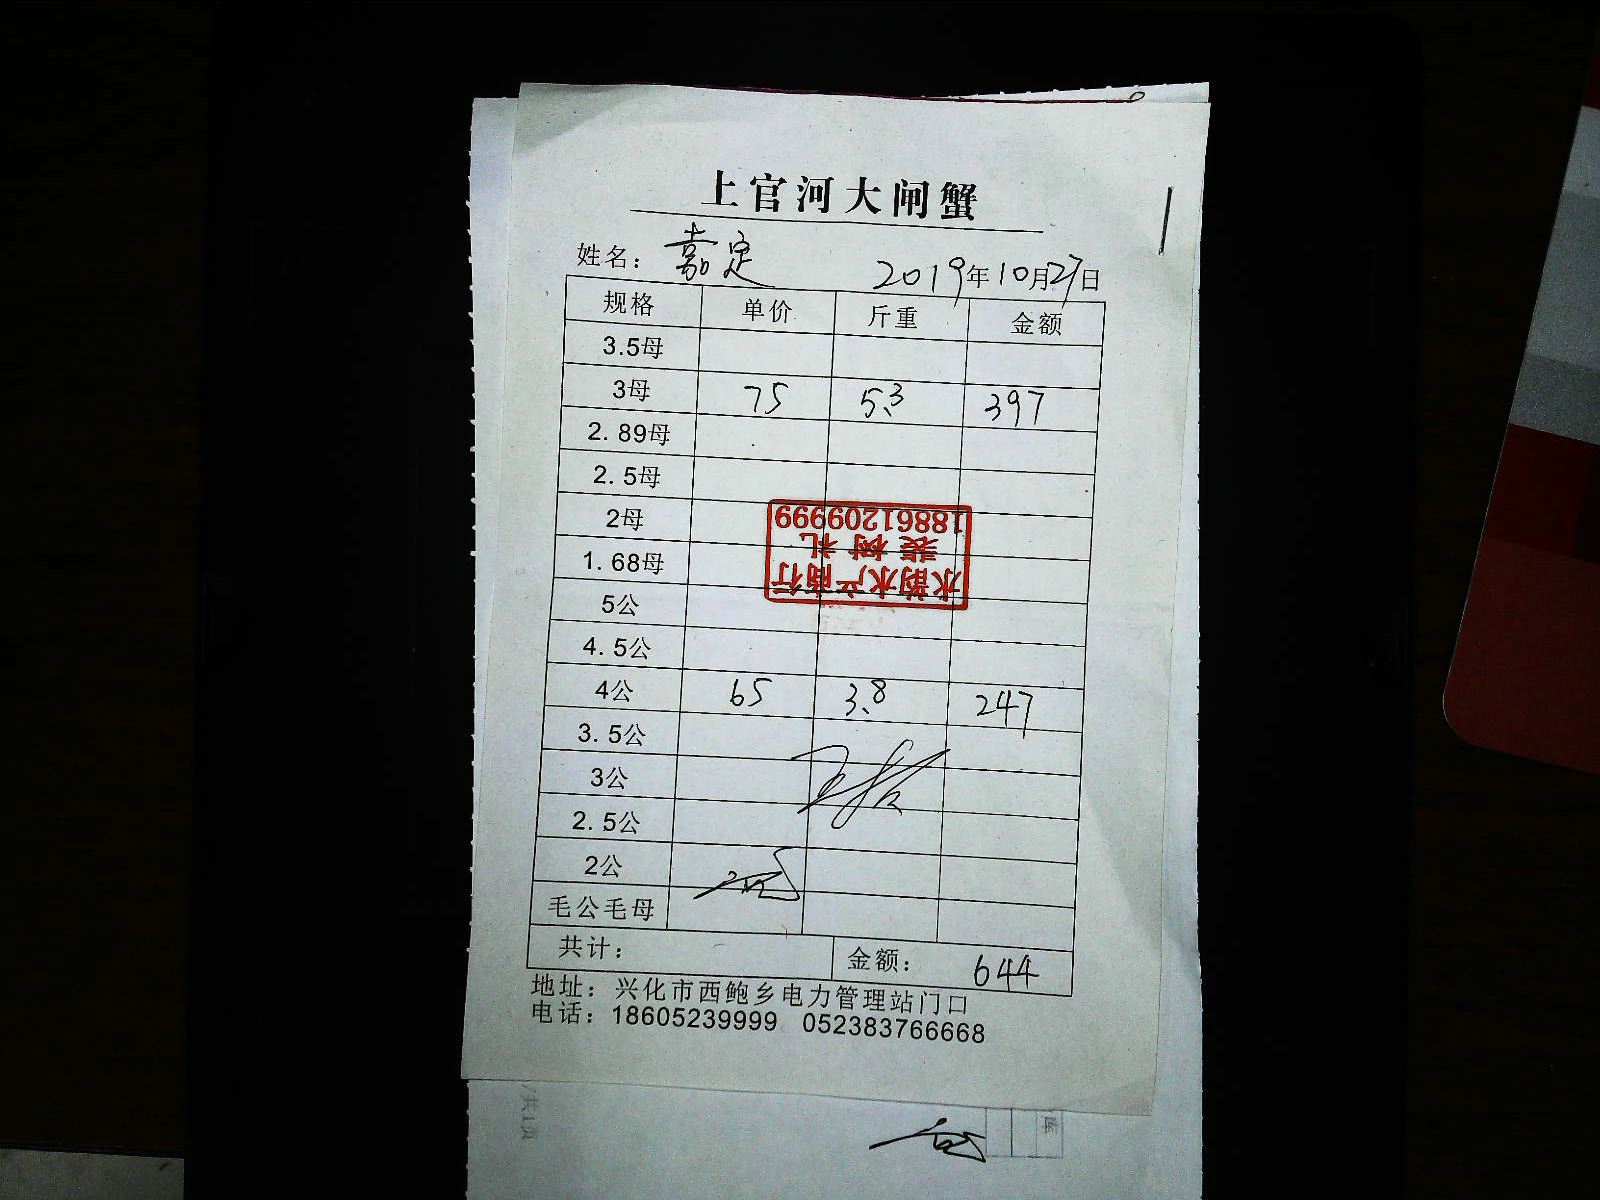 上官河大闸蟹
姓名：嘉定 2019年10月27日
规格 单价 斤重 金额
3.5母
3母 75 5.3 397
2.89母
2.5母
2母
1.68母
5公
4.5公
4公 65 3.8 247
3.5公
3公
2.5公
2公
毛公毛母
共计： 金额：644
地址：兴化市西鲍乡电力管理站门口
电话：18605239999 052383766668
水韵水产商行
裴树礼
18861209999
共1页
库